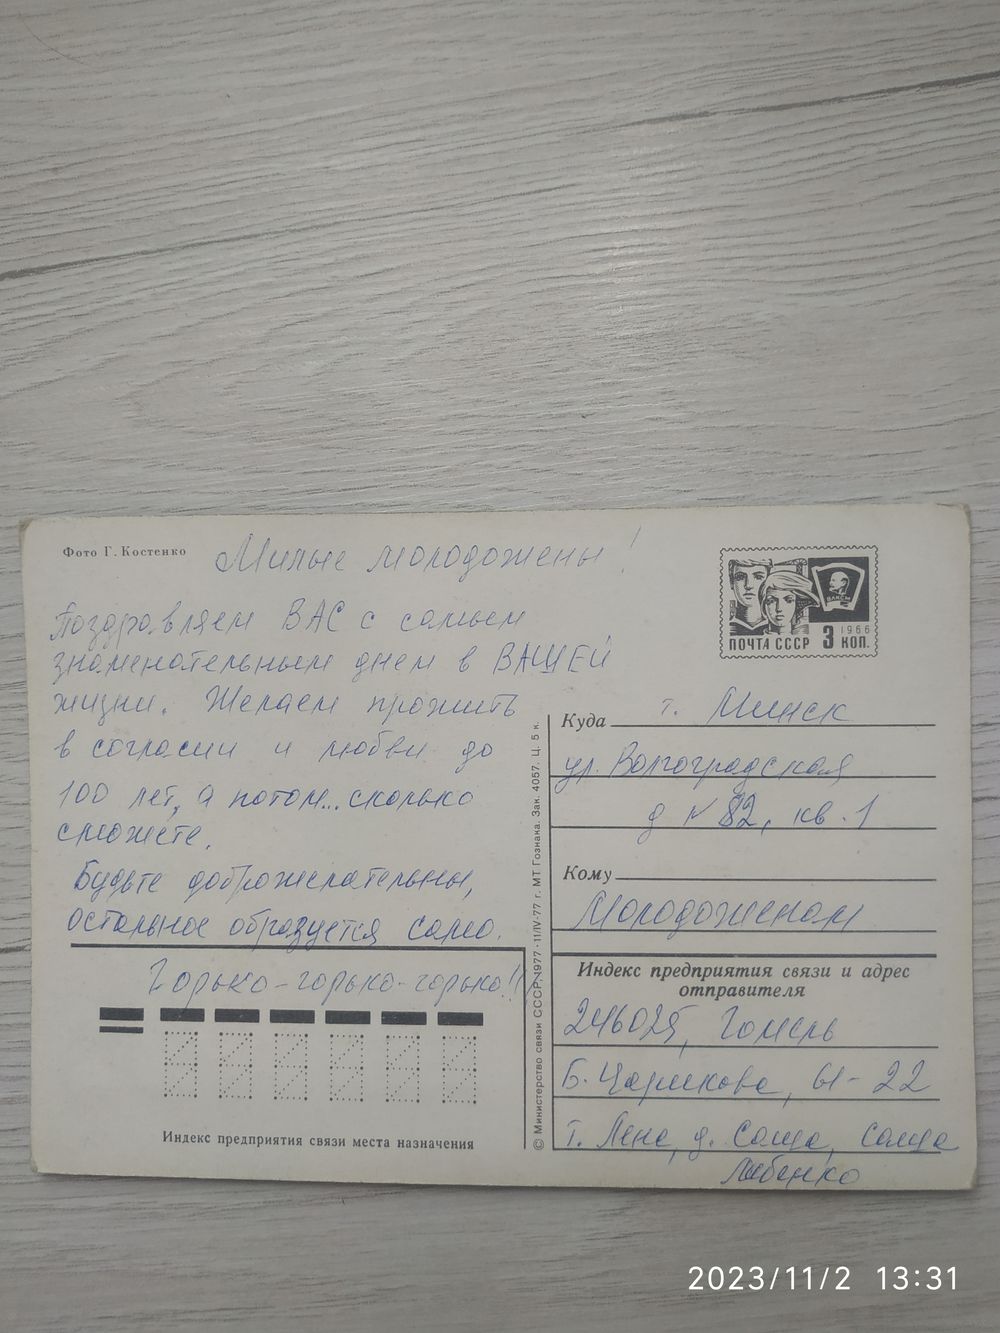 Фото Г. Костенко
Милые молодожены!
Поздравляем ВАС с самым
знаменательным днем в ВАШЕЙ
жизни. Желаем прожить
в согласии и любви до
100 лет, а потом... сколько
сможете.
Будьте доброжелательны,
остальное образуется само.
Горько-горько-горько!!!
Индекс предприятия связи места назначения
© Министерство связи СССР, 1977 · 11/IV-77 г. МТ Гознака. Зак. 4057. Ц. 5 к.
ВЛКСМ
1966
ПОЧТА СССР 3 КОП.
Куда г. Минск
ул. Волгоградская
д № 82, кв. 1
Кому
Молодоженам
Индекс предприятия связи и адрес
отправителя
246025, Гомель
Б. Царикова, 61-22
т. Лена, д. Саша, Саша
2023/11/2 13:31